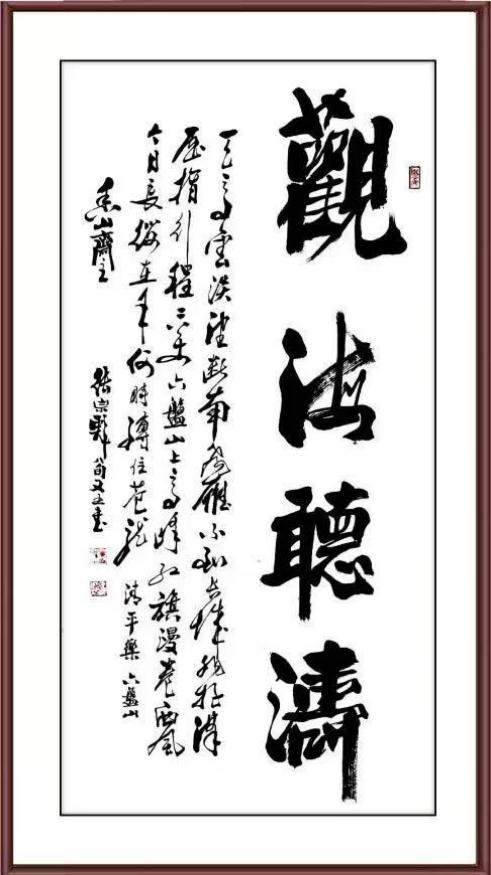 觀海聽濤
天高雲淡望斷南飛雁不到長城非好漢
屈指行程二萬六盤山上高峰紅旗漫卷西風
今日長纓在手何時縛住蒼龍 清平樂 六盤山
山齋主 張宗 書